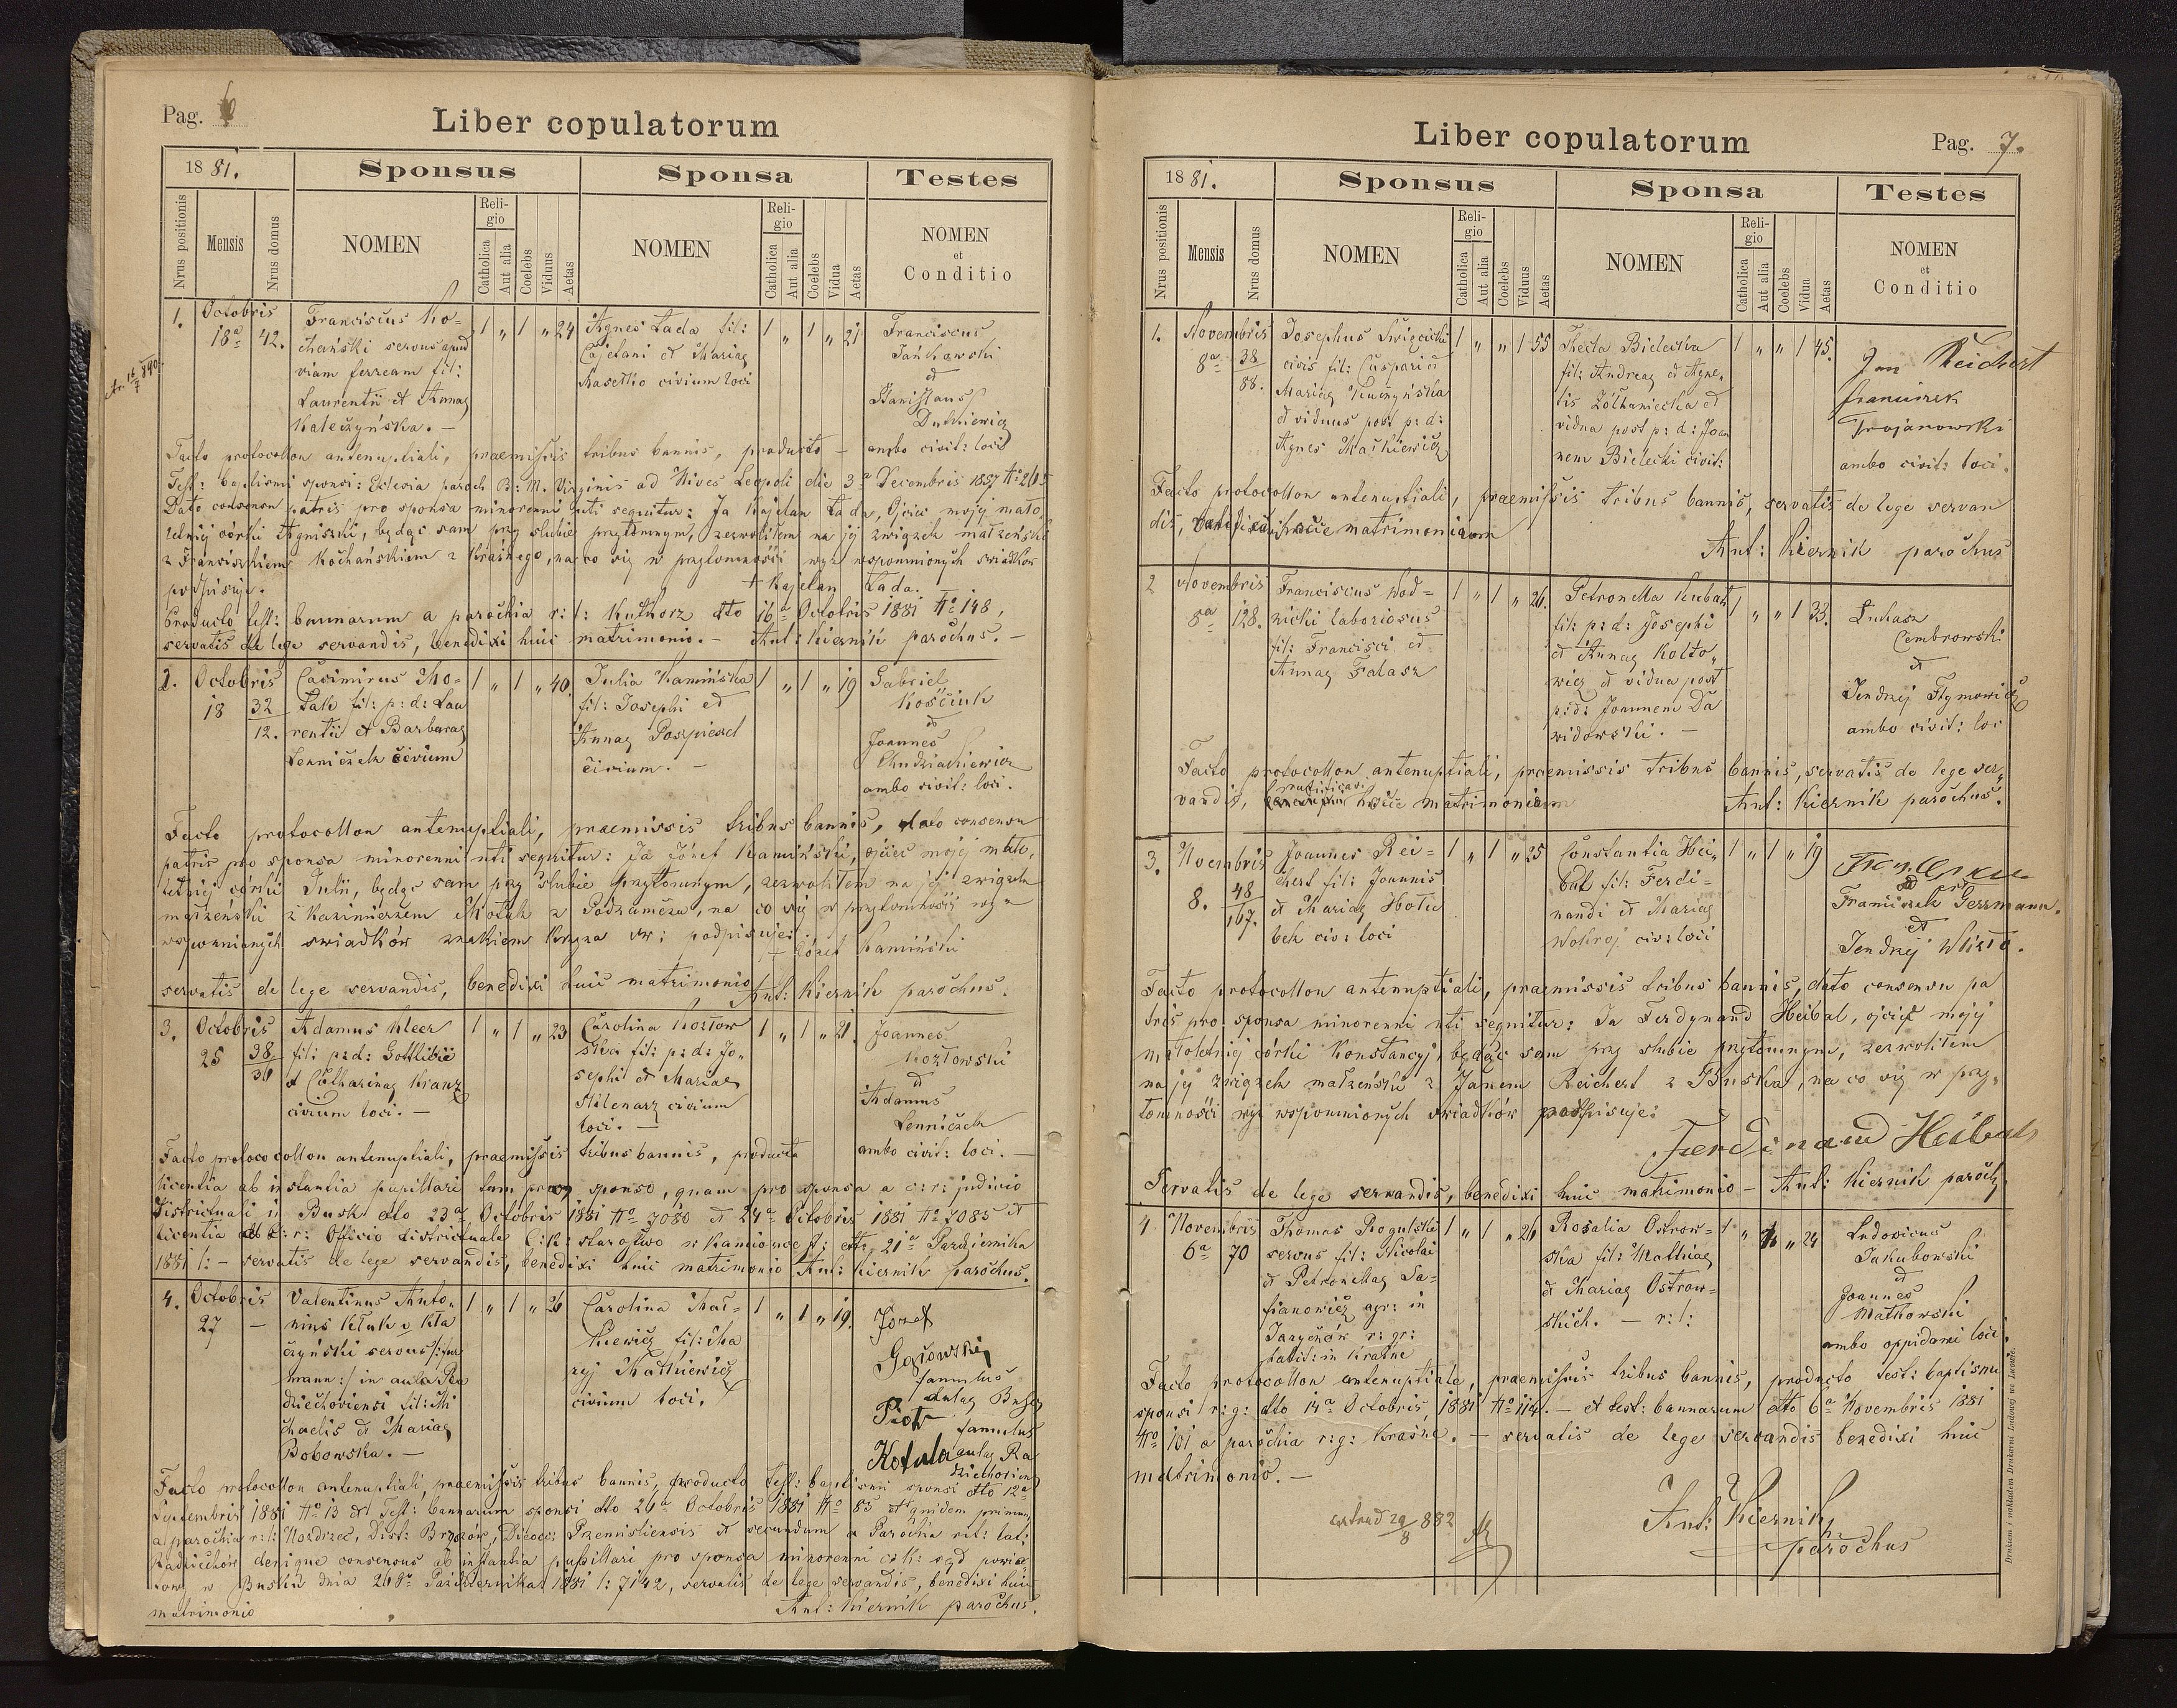 Pag. 6
Liber copulatorum
1881.
Sponsus
Sponsa
Testes
Nrus positionis
Mensis
Nrus domus
NOMEN
Religio
Catholica
Aut alia
Coelebs
Viduus
Aetas
NOMEN
Religio
Catholica
Aut alia
Coelebs
Vidua
Aetas
NOMEN
et
Conditio
1. Octobris 18a 42.
Franciscus Ko=
chański servus apud
viam ferream fil:
Laurentii et Annae
Kaleczyńska. —
1 " 1 " 24
Agnes Łada fil:
Cajetani et Mariae
Masełko civium loci
1 " 1 " 21
Franciscus
Jankowski
et
Stanislaus
Dutkiewicz
ambo civit: loci
Facto protocollon antenuptiali, praemissis tribus bannis, producto —
Test: baptismi sponsi: Eclesia paroch B: M. Virginis ad Nives Leopoli die 3a Decembris 1857 No 265
Dato consensu patris pro sponsa minorenni uti sequitur: Ja Kajetan Łada, Ojciec mojej mało
letniej córki Agniszki, będąc sam przy slubie przytomnym, zezwoliłem na jej związek małżeński
z Franciszkiem Kochańskim z Kraśnego, na co się w przytomności wyż wspomnionych swiadków
podpisuję.
+ Kajetan Łada.
Producto test: bannarum a parochia r: l: Kutkorz dto 16a Octobris 1881 No 148,
servatis de lege servandis, benedixi huic matrimonio. — Ant: Kiernik parochus. —
2. Octobris 18 32/12.
Casimirus Mo=
tak fil: p: d: Lau
rentii et Barbarae
Lenniczek civium
1 " 1 " 40.
Julia Kamińska
fil: Josephi et
Annae Pospiesel
civium. —
1 " 1 " 19
Gabriel
Kościuk
et
Joannes
Chudziakiewicz
ambo civit: loci.
Facto protocollon antenuptiali, praemissis tribus bannis, dato consensu
patris pro sponsa minorenni uti sequitur: Ja Józef Kamiński, ojciec mojej mało,
letniej córki Julii, będąc sam przy slubie przytomnym, zezwoliłem na jej związek
małżeński z Kazimierzem Motak z Podzamcza, na co się w przytomności wyż
wspomnianych swiadków znakiem krzyża sw: podpisuję:
+ Józef Kamiński
servatis de lege servandis, benedixi huic matrimonio Ant: Kiernik parochus.
3. Octobris 25 38/36
Adamus Kleer
fil: p: d: Gottlibii
et Catharinae Kranz
civium loci. —
1 " 1 " 23
Carolina Kozłow
ska fil: p: d: Jo"
sephi et Mariae
Mlenarz civium
loci. —
1 " 1 " 21.
Joannes
Kozłowski
et
Adamus
Lenniczek
ambo civit: loci. —
Facto protocollon antenuptiali, praemissis tribus bannis, producta
licentia ab instantia pupillari tum pro sponso, quam pro sponsa a c: r: judicio
districtuali in Busk dto 23a Octobris 1881 No 7080 et 24a Octobris 1881 No 7085 et
licentia ab C: r: Officio districtuale C: k: starostwo w Kamionce
1881 l: — servatis de lege servandis, benedixi huic matrimonio Ant: Kiernik parochus.
4. Octobris 27 —
Valentinus Anto"
nius Kluk v Kla
czyński servus /: fur
mann :/ in aula Ra
dziechoviensi fil: Mi
chaelis et Mariae
Bobowska. —
1 " 1 " 26
Carolina Mać=
kiewicz fil: Ma
ryj Maćkiewicz
civium loci.
1 " 1 " 19.
Józef
famulus
aulae
Piotr
famulus
Kotula aulae Ra
dziechovien
Facto protocollon antenuptiali, praemissis tribus bannis, producto test: baptismi sponsi dto 12a
Septembris 1881 No 13 et Test: bannarum sponsi dto 26a Octobris 1881 No 85 et quidem primum
a parochia r: l: Nozdrzec, Dist: Brzozów, Dioec: Przemisliensis et secundum a Parochia rit: lat:
Radziechów denique consensus ab instantia pupillari pro sponsa minorenni c: k: sąd powia
towy w Busku dnia 26go Pazdziernika 1881 l: 7142, servatis de lege servandis, benedixi huic
matrimonio
Ant: Kiernik parochus.
Liber copulatorum
Pag. 7.
1881.
Sponsus
Sponsa
Testes
Nrus positionis
Mensis
Nrus domus
NOMEN
Religio
Catholica
Aut alia
Coelebs
Viduus
Aetas
NOMEN
Religio
Catholica
Aut alia
Coelebs
Vidua
Aetas
NOMEN
et
Conditio
1. Novembris 8a 38/88.
Josephus Święcicki
civis fil: Casparii
Mariae
et viduus post p: d:
Agnes Maćkiewicz
1 " " 1 55
Thecla Bielecka
fil: Andreae et Agne,
tis Żółkaniecka et
vidua post p: d: Joan
nem Bielecki civit:
1 " " 1 45.
Jan Reichert
Franciszek
Trojanowski
ambo civit: loci.
Facto protocollon antenuptiali, praemissis tribus bannis, servatis de lege servan
dis, matrimonium
Ant: Kiernik parochus
2 Novembris 8a 128.
Franciscus Wod=
nicki laboriosus
fil: Francisci et
Annae Falasz
1 " 1 " 26.
Petronella Kubat
fil: p: d: Josephi
et Annae Kołto"
wicz et vidua post
p: d: Joannem Da
widowski. —
1 " " 1 33.
Lukasz
Cembrowski
et
Jendrzej
ambo civit: loc
Facto protocollon antenuptiali, praemissis tribus bannis, servatis de lege ser"
vandis, ratificavi hocce matrimonium Ant: Kiernik parochus.
3. Novembris 8. 48/167.
Joannes Rei=
chert fil: Joannis
et Mariae Hołu
bek civ: loci
1 " 1 " 25
Constantia Hei"
bal fil: Ferdi=
nandi et Mariae
Wokroj civ: loci
1 " 1 " 19
Franciszek Gerzmann.
et
Jendrzej
Facto protocollon antenuptiali, praemissis tribus bannis, dato consensu pa
tris pro sponsa minorenni uti sequitur: Ja Ferdynand Heibal, ojciec mojej
małoletniej córki Konstancyj, będąc sam przy slubie przytomnym, zezwoliłem
na jej związek małżeński z Janem Reichert z Buska, na co się w przy"
tomności wyż wspomnionych swiadków podpisuję:
Ferdinand Heibal
Servatis de lege servandis, benedixi huic matrimonio — Ant: Kiernik paroch,
4 Novembris 6a 70
Thomas Rogulski
servus fil: Nicolai
et Petronellae Sa=
fianowicz agr: in
Jaryczów r: gr:
habit: in Kraśne
1 " 1 " 26
Rosalia Ostrow=
ska fil: Mathiae
et Mariae Ostrow=
skich. — r: l:
" 24
Ludovicus
Jakubowski
et
Joannes
Matkowski
ambo oppidani loci.
Facto protocollon antenuptiale, praemissis tribus bannis, producto test: baptismi
sponsi r: g: dto 14a Octobris 1881 No 114. — et test: bannarum dto 6a Novembris 1881
No 101 a parochia r: g: Kraśne. — servatis de lege servandis benedixi huic
matrimonio. —
extrad 29/8 882
Ant: Kiernik
parochus
Drukiem i nakładem Drukarni Ludowej we Lwowie.